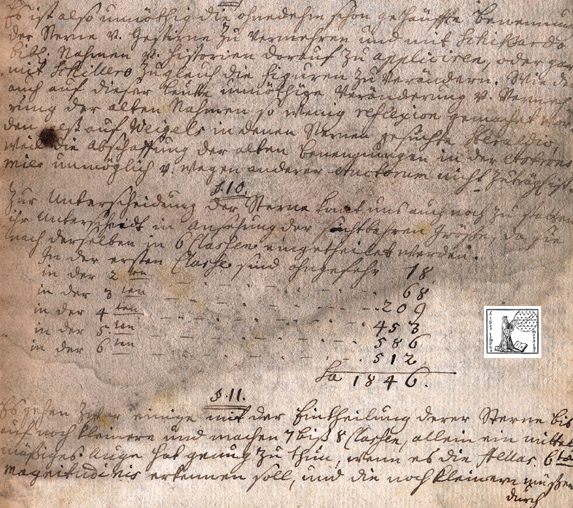 Es ist also unnöthig die ohnedehm schon gehäuffte Benennun
der Sterne v. Gestirne zu vermehren und mit Schikkards
Bibl. Nahmen v. Historien darauf zu appliciren, oder gar
mit Schillero zugleich die Figuren zu verändern. Wie de
auch auf dieser Leute unnöthige Veränderung v. Verneu
rung der alten Nahmen so wenig reflexion gemacht wor
den als auf Weigels in denen Sternen gesuchte Heraldic
weil die Abschaffung der alten Benennungen in der Astrono
mie unmöglich v. wegen anderer Autorum nicht zuträgl. ist.
§. 10.
Zur Unterscheidung der Sterne uns auch noch zu
ihr Unterscheid in Ansehung der Größe, da sie
nach derselben in 6 Classen eingetheilet werden.
In der ersten Classe sind ohngefehr 18
in der 2 ten 68
in der 3 ten 209
in der 4 ten 453
in der 5 ten 586
in der 6 ten 512
Sa 1846.
§. 11.
Es gehen zwar einige mit der Eintheilung derer Sterne bis
auf noch kleinere und machen 7 biß 8 Classen, allein ein mittel
mäßiges Auge hat genung zu thun, wenn es die stellas 6tæ
magnitudinis erkennen soll, und die noch kleinern müßen
durch